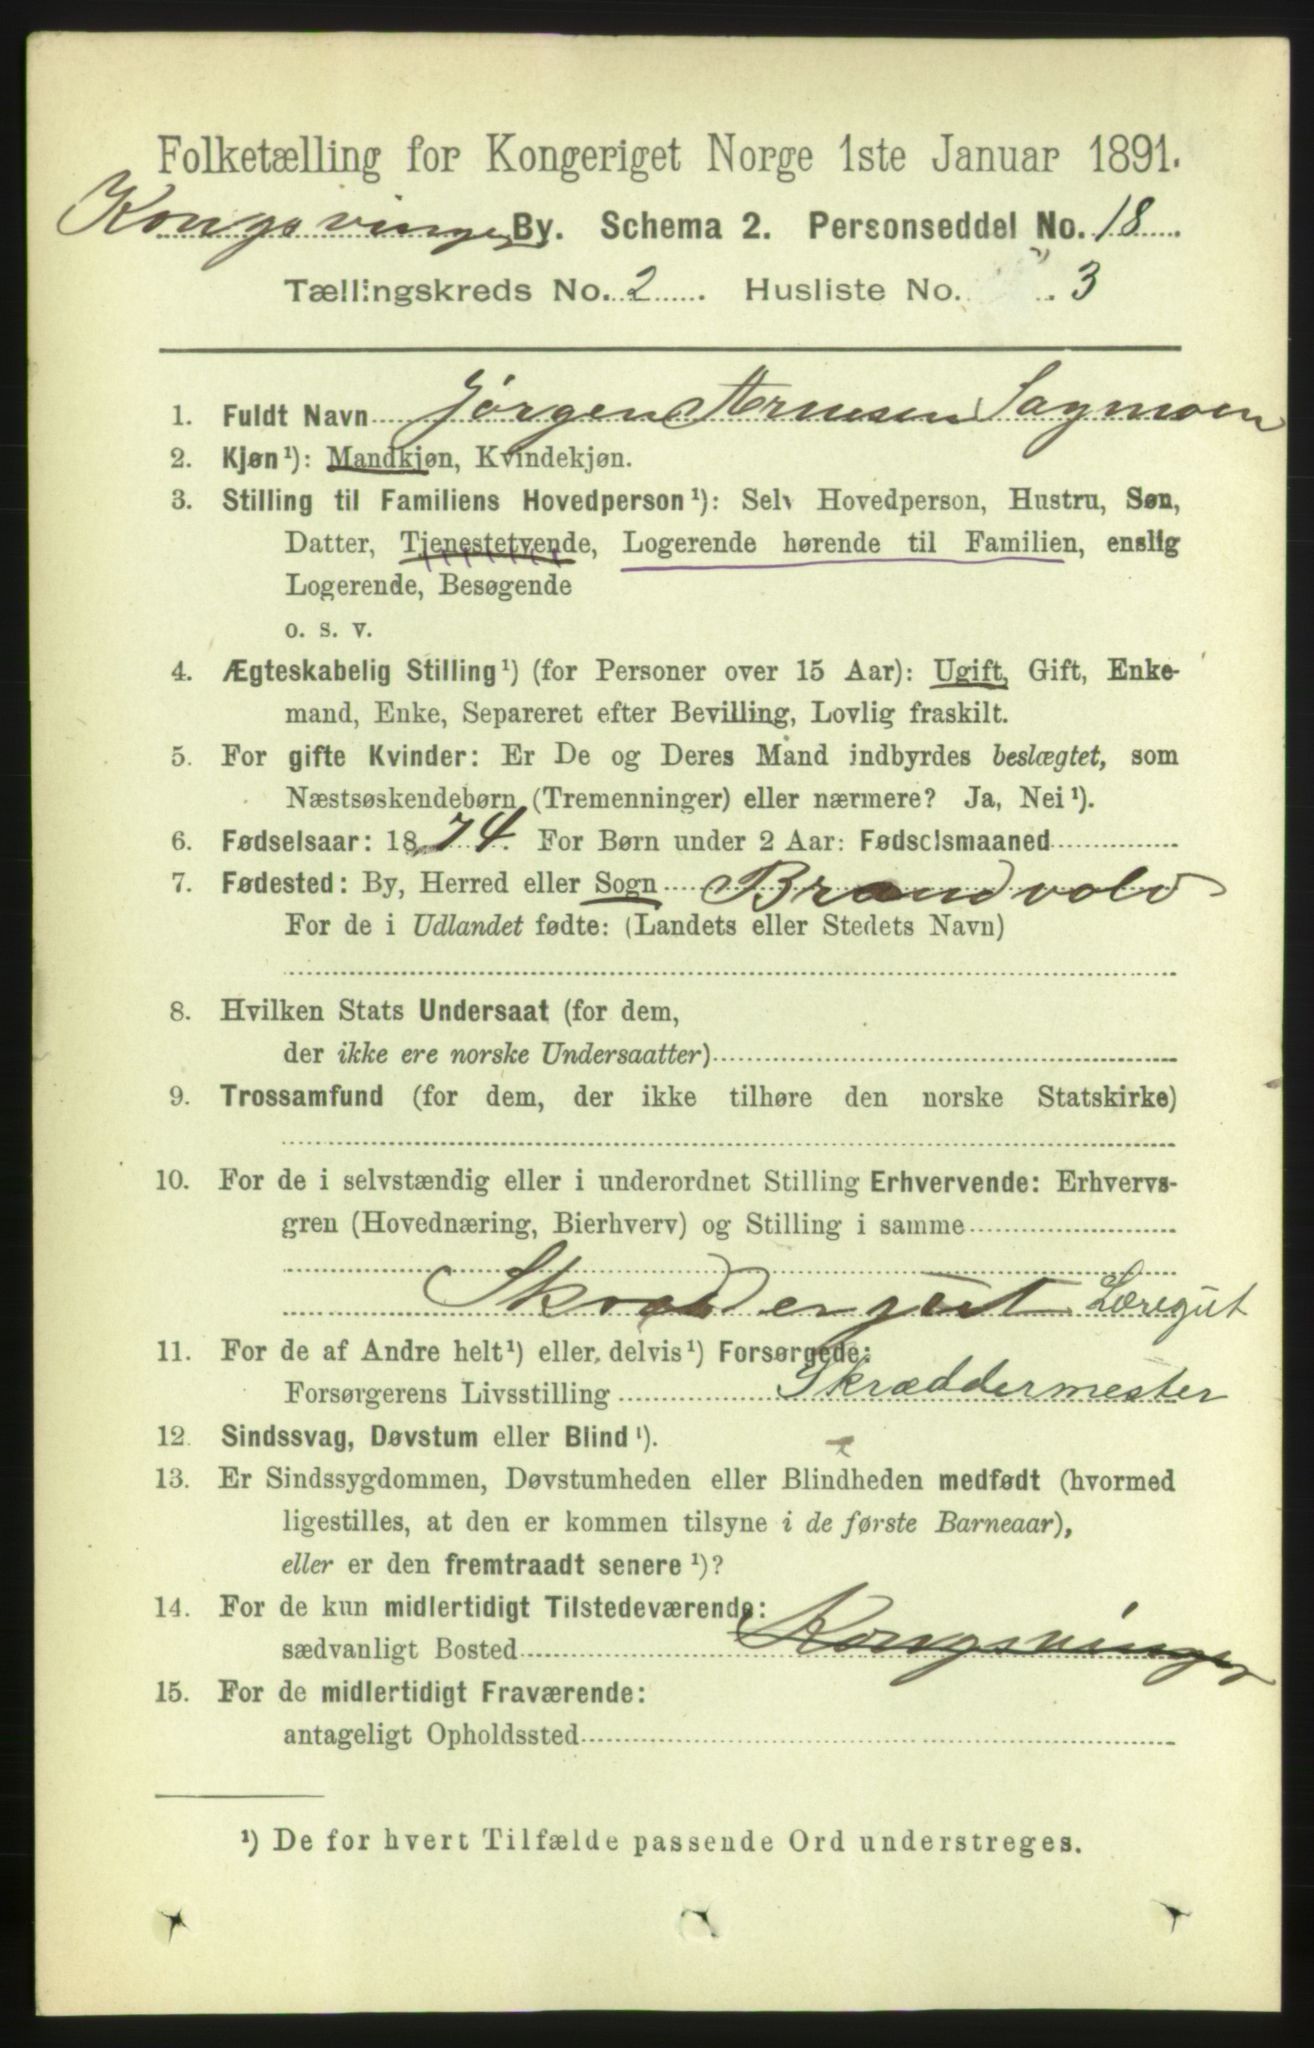 Folketælling for Kongeriget Norge 1ste Januar 1891.
Kongsvinger By. Schema 2. Personseddel No. 18
Tællingskreds No. 2 Husliste No. 3
1. Fuldt Navn Jørgen Arnesen Sagmoen
2. Kjøn¹): Mandkjøn, Kvindekjøn.
3. Stilling til Familiens Hovedperson¹): Selv Hovedperson, Hustru, Søn,
Datter, Tjenestetyende, Logerende hørende til Familien, enslig
Logerende, Besøgende
o. s. v.
4. Ægteskabelig Stilling¹) (for Personer over 15 Aar): Ugift, Gift, Enke-
mand, Enke, Separeret efter Bevilling, Lovlig fraskilt.
5. For gifte Kvinder: Er De og Deres Mand indbyrdes beslægtet, som
Næstsøskendebørn (Tremenninger) eller nærmere? Ja, Nei¹).
6. Fødselsaar: 1874. For Børn under 2 Aar: Fødselsmaaned
7. Fødested: By, Herred eller Sogn Brandvold
For de i Udlandet fødte: (Landets eller Stedets Navn)
8. Hvilken Stats Undersaat (for dem,
der ikke ere norske Undersaatter)
9. Trossamfund (for dem, der ikke tilhøre den norske Statskirke)
10. For de i selvstændig eller i underordnet Stilling Erhvervende: Erhvervs-
gren (Hovednæring, Bierhverv) og Stilling i samme
Skræddergut Læregut
11. For de af Andre helt¹) eller delvis¹) Forsørgede:
Forsørgerens Livsstilling Skræddermester
12. Sindssvag, Døvstum eller Blind¹).
13. Er Sindssygdommen, Døvstumheden eller Blindheden medfødt (hvormed
ligestilles, at den er kommen tilsyne i de første Barneaar),
eller er den fremtraadt senere¹)?
14. For de kun midlertidigt Tilstedeværende:
sædvanligt Bosted Kongsvinger
15. For de midlertidigt Fraværende:
antageligt Opholdssted
¹) De for hvert Tilfælde passende Ord understreges.